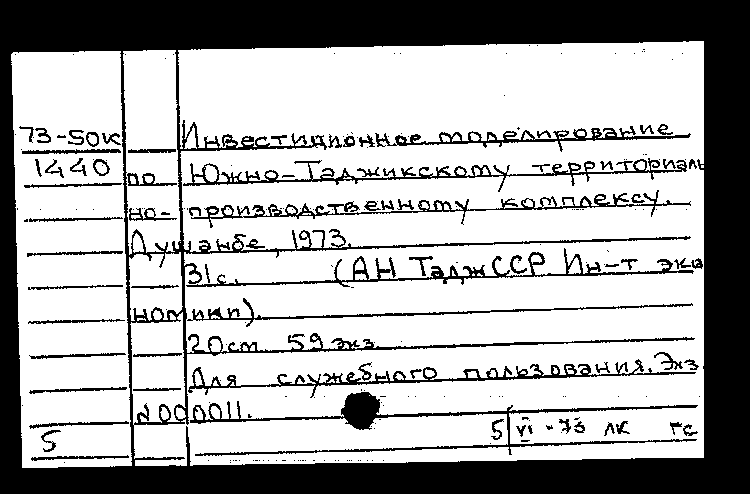 73-50к Инвестиционное моделирование
1440 по Южно-Таджикскому территориаль
но- производственному комплексу.
Душанбе, 1973.
31с. (АН ТаджССР. Ин-т эко
номики).
20см 59 экз.
Для служебного пользования. Экз.
№000011.
5 5 VI-73 ЛК ГС